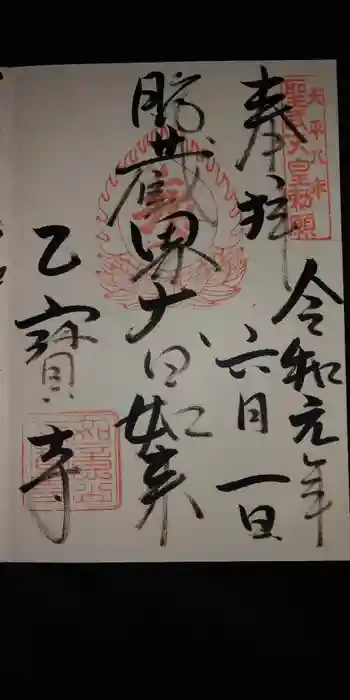 天平八年
聖武天皇勅願
奉拝
令和元年
六月一日
胎蔵界大日如来
乙寳寺